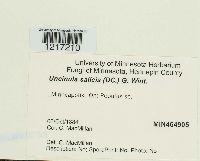 1217210
University of Minnesota Herbarium
Fungi of Minnesota, Hennepin County
Uncinula salicis (DC.) G. Wint.
Minneapolis. On: Populus sp.
Col. C. MacMillan
MIN464905
Det. C. MacMillan